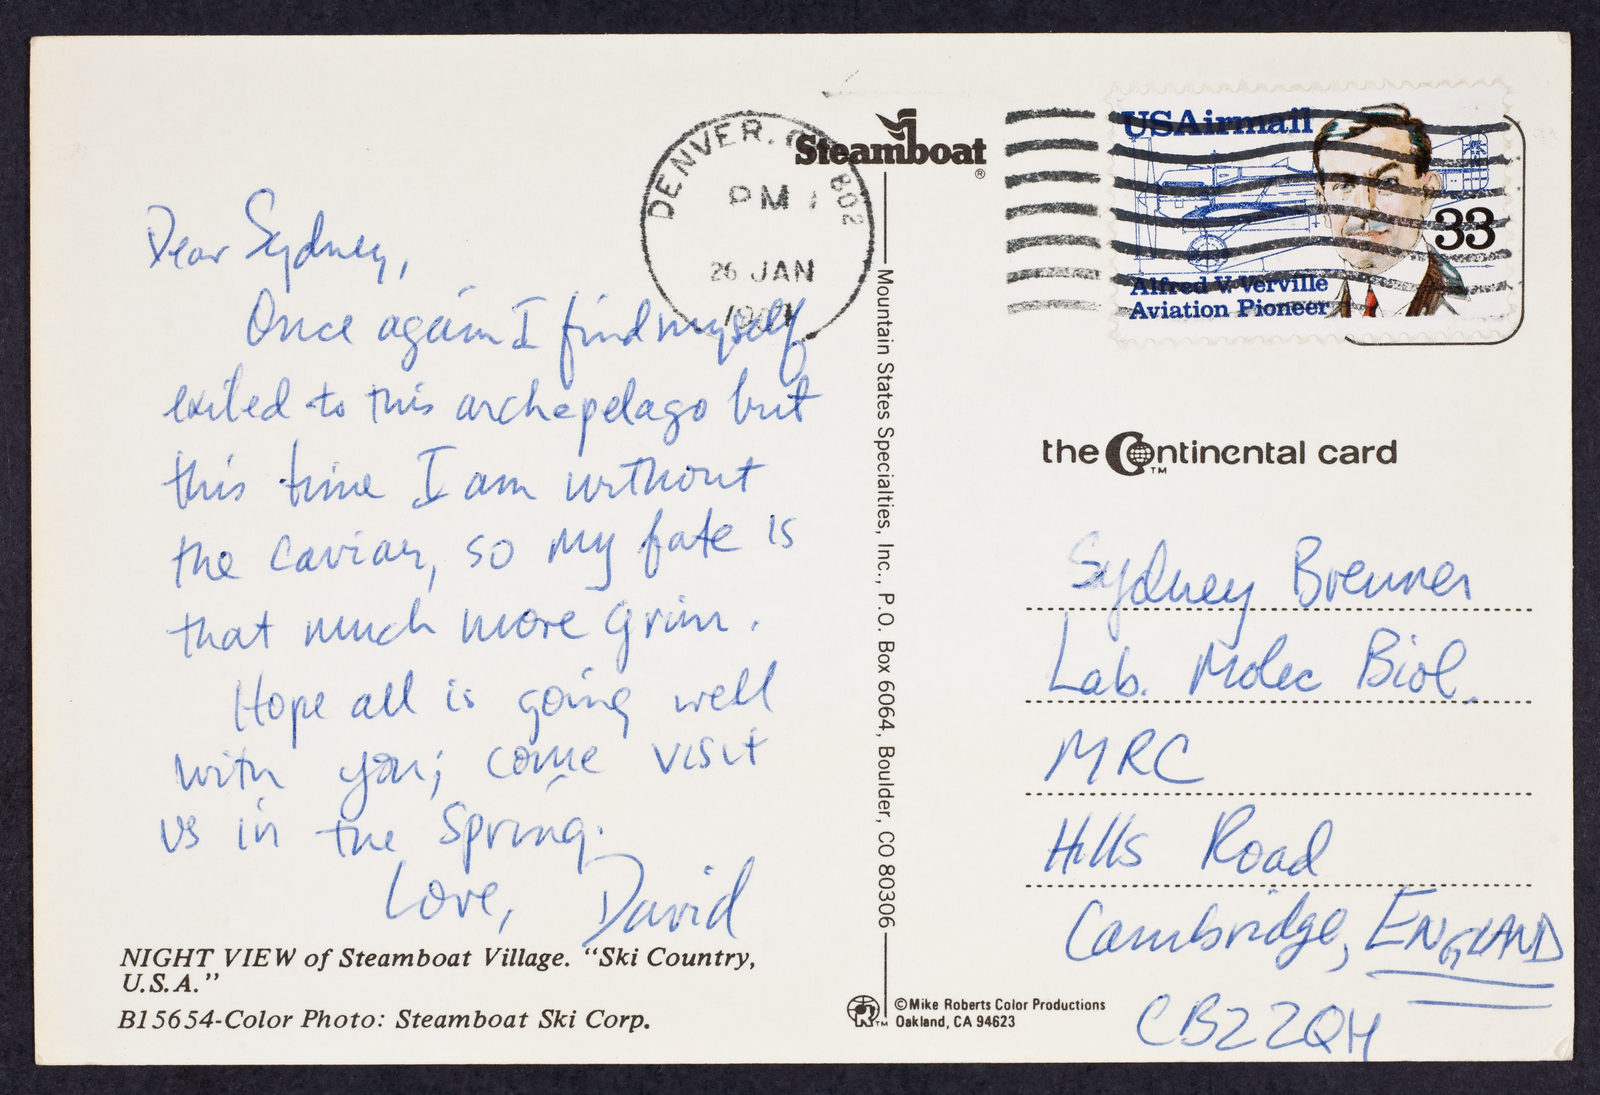 Dear Sydney,
Once again I find myself
exiled to this archepelago but
this time I am without
the caviar, so my fate is
that much more grim.
Hope all is going well
with you; come visit
us in the Spring.
Love, David
NIGHT VIEW of Steamboat Village. "Ski Country,
U.S.A."
B15654-Color Photo: Steamboat Ski Corp.
DENVER, 802
PM
26 JAN
Steamboat®
Mountain States Specialties, Inc., P.O. Box 6064, Boulder, CO 80306
USAirmail
33
Alfred V. Verville
Aviation Pioneer
the Continental card
TM
Sydney Brenner
Lab. Molec Biol.
MRC
Hills Road
Cambridge, ENGLAND
CB22QH
TM
©Mike Roberts Color Productions
Oakland, CA 94623